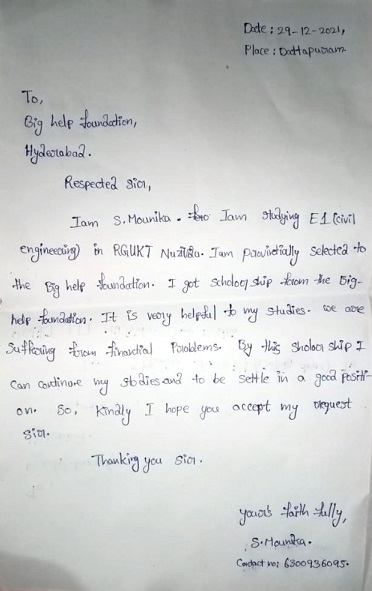 Date : 29-12-2021,
Place : Dattapuram
To,
Big help foundation,
Hyderabad.
Respected Sir,
Iam S. Mounika. Iam studying E1 (civil
engineering) in RGUKT Nuzividu. Iam provintially selected to
the Big help foundation. I got scholor ship from the Big-
help foundation. It is very helpful to my studies. we are
Suffering from financial Problems. By this sholor ship I
Can continue my studies and to be settle in a good positi-
on. So, Kindly I hope you accept my request
Sir.
Thanking you Sir.
your's faith fully,
S. Mounika.
Contact no: 6300936095.